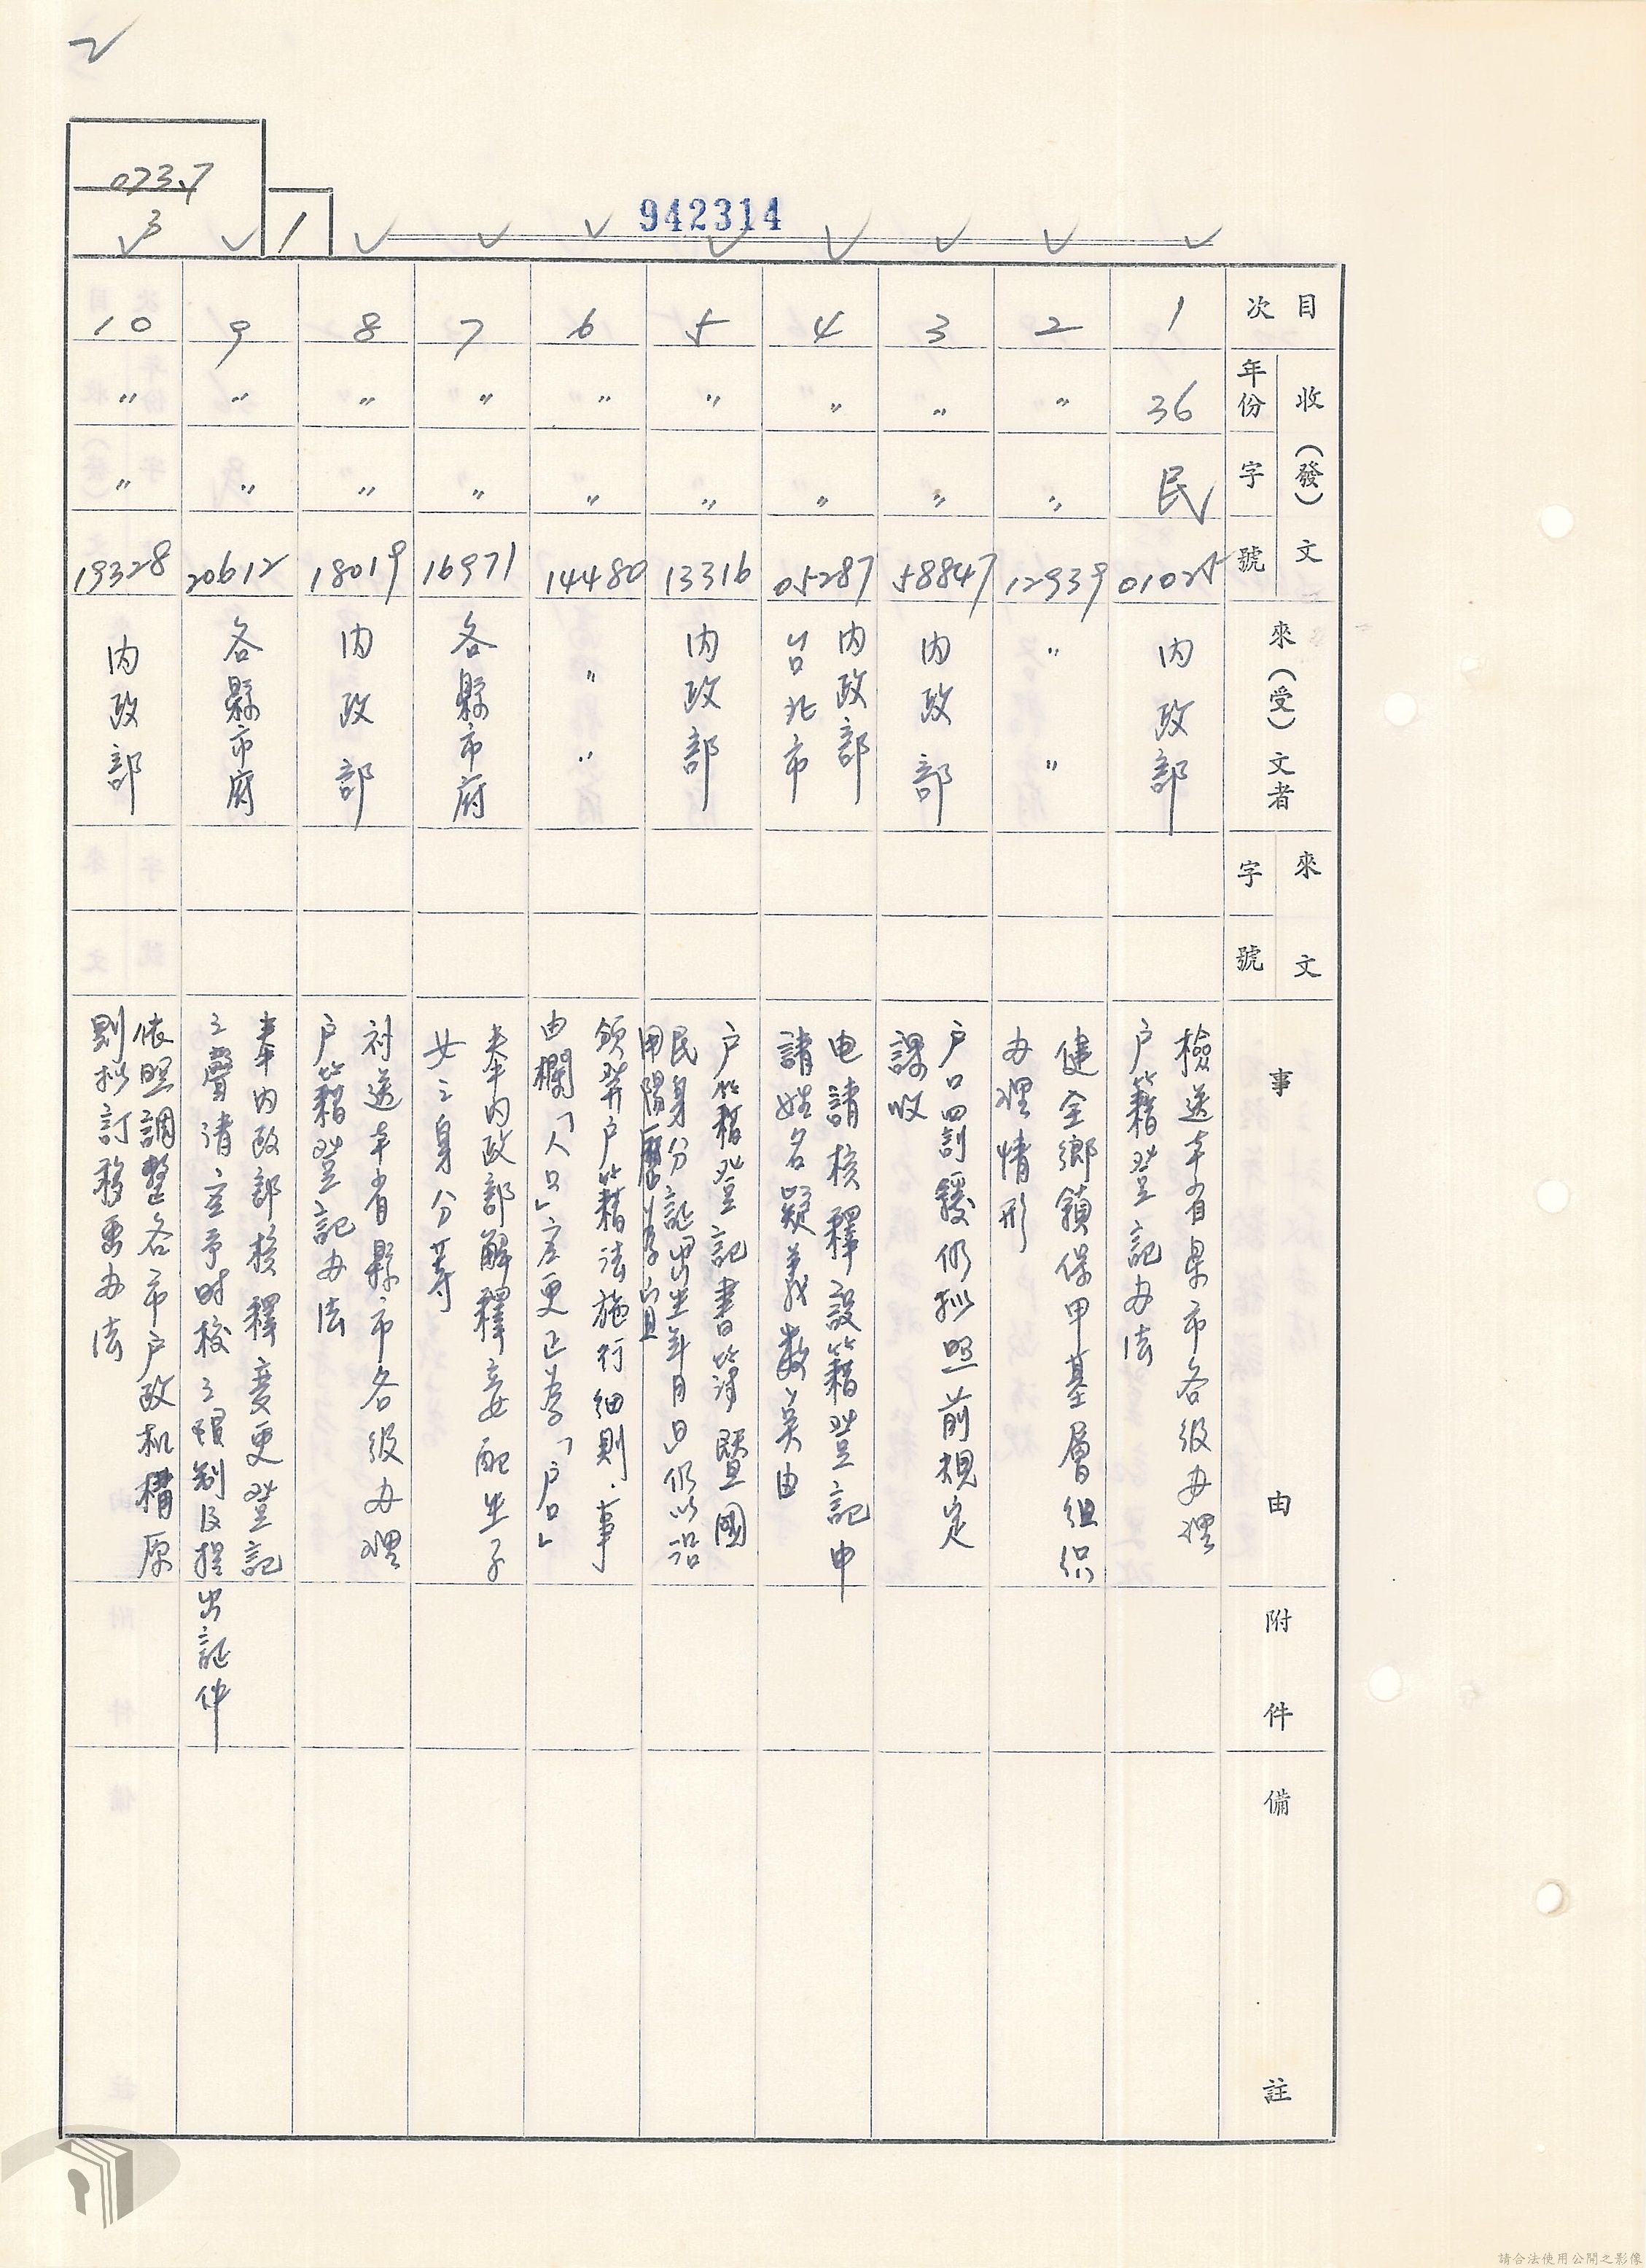 2
023.7
3
1
942314
目次
收（發）文
年份
字
號
來（受）文者
來文
字
號
事由
附件
備註
1
36
民
01025
內政部
檢送本省県市各級办理
戶籍登記办法
2
〃
〃
12939
〃〃
健全鄉鎮保甲基層組织
办理情形
3
〃
〃
58847
內政部
戶口罰鍰仍拟照前規定
課收
4
〃
〃
05287
內政部
台北市
电請核釋設籍登記申
請姓名疑義数矣由
5
〃
〃
13316
內政部
戶籍登記書簿暨國
民身分証出生年月日仍以沿
用陽曆為宜
6
〃
〃
14480
〃〃
頒弊戶籍法施行細則．事
由欄「人口」应更正為「戶口」
7
〃
〃
16971
各縣市府
奉內政部解釋妾配生子
女之身分等
8
〃
〃
18019
內政部
討送本省縣市各級办理
戶籍登記办法
9
〃
〃
20612
各縣市府
奉內政部核釋变更登記
之聲請应予时校之限制及提出証件
10
〃
〃
19328
內政部
依照調整各市戶政机構原
則拟訂移要办法
請合法使用公開之影像